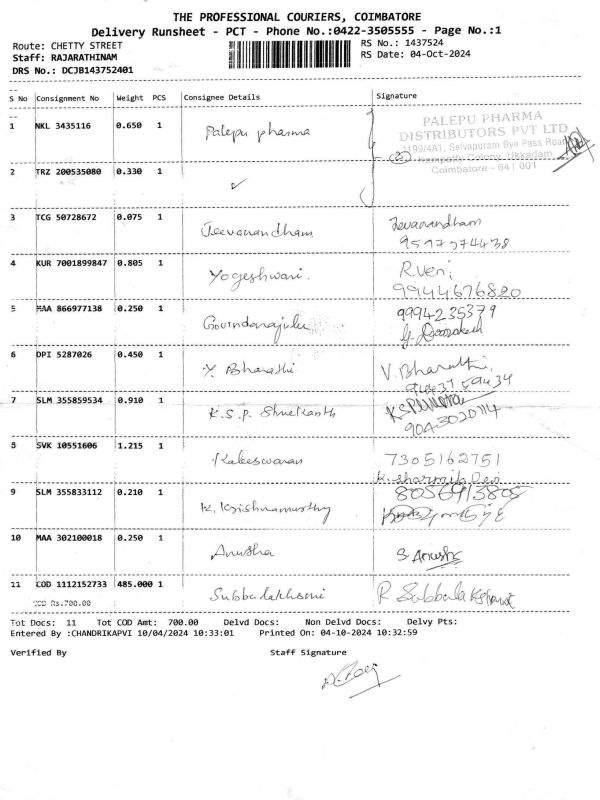 THE PROFESSIONAL COURIERS, COIMBATORE
Delivery Runsheet - PCT - Phone No.:0422-3505555 - Page No.:1
Route: CHETTY STREET RS No.: 1437524
Staff: RAJARATHINAM RS Date: 04-Oct-2024
DRS No.: DCJB143752401
S No Consignment No Weight PCS Consignee Details Signature
1 NKL 3435116 0.650 1 Palepu pharma
PALEPU PHARMA
DISTRIBUTORS PVT LTD
1199/4A1, Selvapuram Bye Pass Road
Colony, Ukkadam
Coimbatore - 641 001
2 TRZ 200535080 0.330 1 ✓
3 TCG 50728672 0.075 1 Jeevanandham Jeevanandham
9597374438
4 KUR 7001899847 0.805 1 Yogeshwari. R.veni
9944676820
5 MAA 866977138 0.250 1 Govindarajulu 9994235379
6 DPI 5287026 0.450 1 Y. Bharathi V. Bharathi
7 SLM 355859534 0.910 1 K.S.P. Shreekanth
9043020114
8 SVK 10551606 1.215 1 Kaleeswaran 7305162751
K. Sharmila Devi
9 SLM 355833112 0.210 1 K. Krishnamurthy 8056913805
10 MAA 302100018 0.250 1 Anusha S Anusha
11 COD 1112152733 485.000 1 Subbulakhsmi R Subbulakshmi
COD Rs.700.00
Tot Docs: 11 Tot COD Amt: 700.00 Delvd Docs: Non Delvd Docs: Delvy Pts:
Entered By :CHANDRIKAPVI 10/04/2024 10:33:01 Printed On: 04-10-2024 10:32:59
Verified By Staff Signature